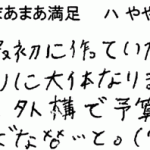 まあまあ満足　ハ やや
最初に作ってい
りに大体なりま
外構で予算
どな…と。(